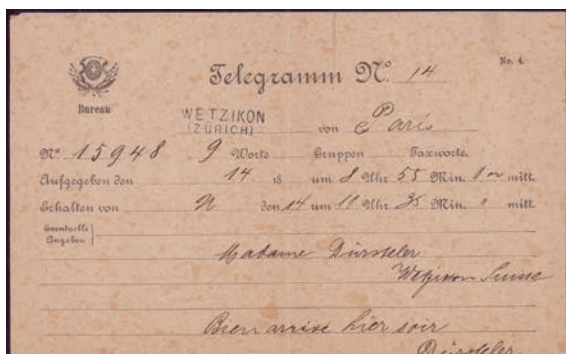 Telegramm Nº 14
No. 4.
Bureau
WETZIKON
(ZÜRICH)
von Paris
Nº 15948 9 Worte Gruppen Taxworte.
Aufgegeben den 14 18 um 8 Uhr 55 Min. mitt.
Erhalten von N den 14 um 11 Uhr 35 Min. " mitt.
Eventuelle
Angaben
Madame Dürsteler
Wetzikon Suisse
Bien arrivé hier soir
Dürsteler